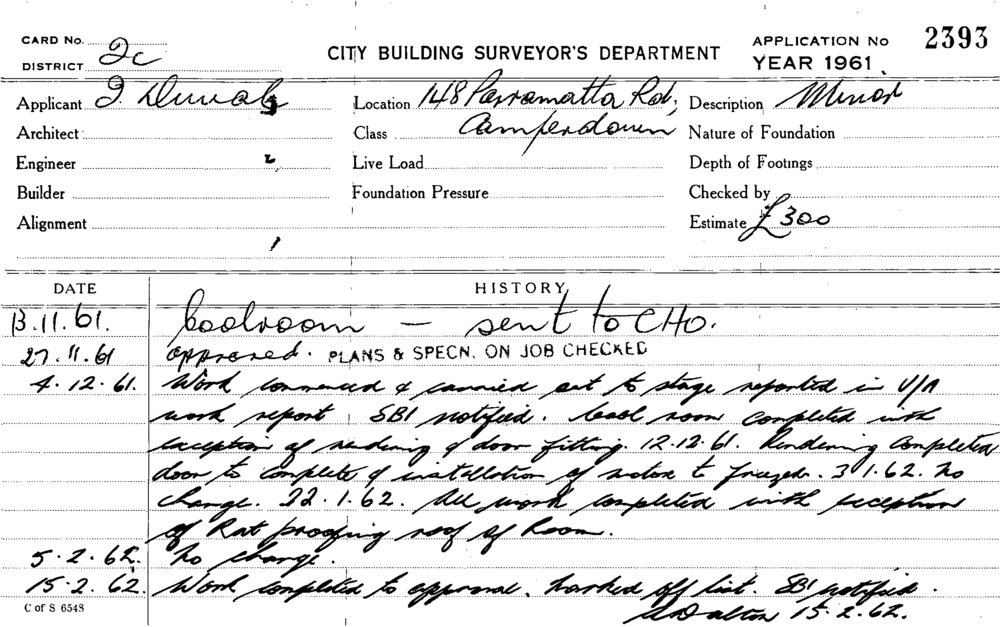 CARD No. 2c
DISTRICT
CITY BUILDING SURVEYOR'S DEPARTMENT
APPLICATION No 2393
YEAR 1961
Applicant
Location 148 Parramatta Rd,
Description Minor
Architect
Class Camperdown
Nature of Foundation
Engineer
Live Load
Depth of Footings
Builder
Foundation Pressure
Checked by
Alignment
Estimate £300
DATE HISTORY
13.11.61. Coolroom — sent to CHO.
27.11.61 approved. PLANS & SPECN. ON JOB CHECKED
4.12.61. Work commenced & carried out to stage reported in V/A
work report SBI notified. Cool room completed with
exception of rendering & door fitting. 12.12.61. Rendering Completed
door to complete & installation of motor to freezer. 3.1.62. No
change. 22.1.62. All work completed with exception
of Rat proofing roof of Room.
5.2.62. No change.
15.2.62. Work completed to approval. Marked off list. SBI notified.
Dalton 15.2.62.
C of S 6548